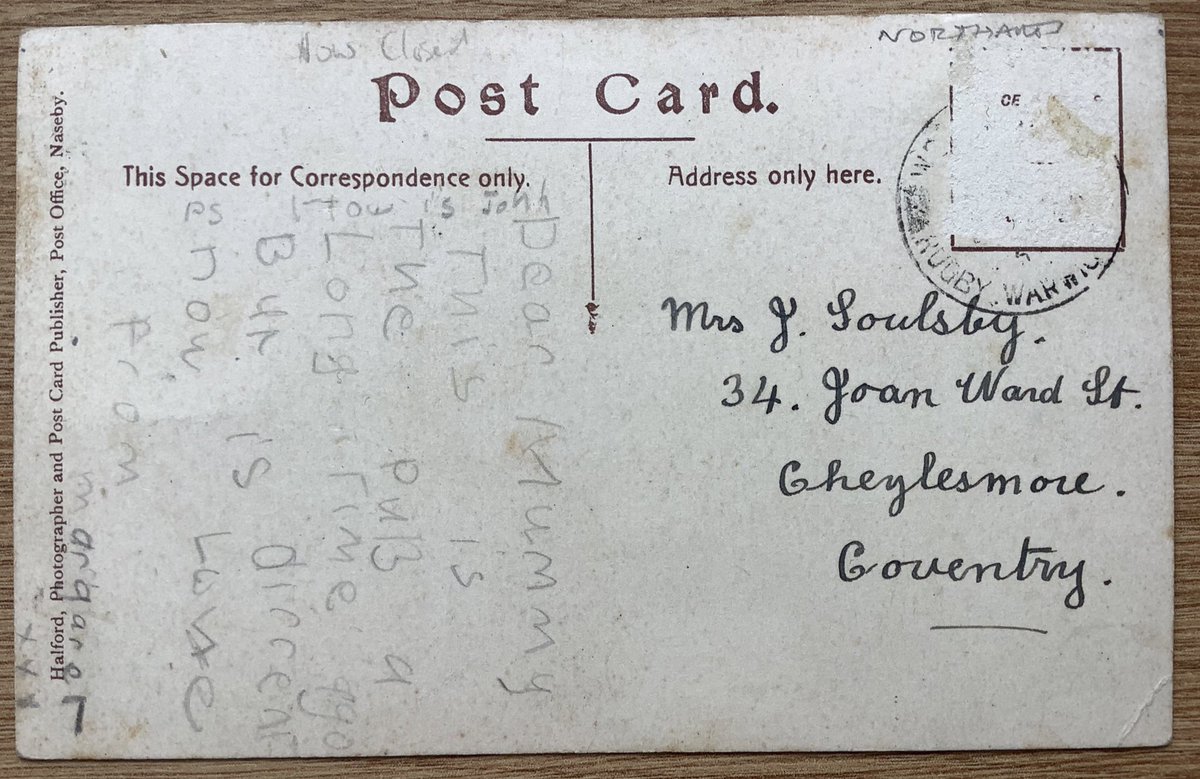 Now Closed
NORTHANTS
Post Card.
This Space for Correspondence only.
Address only here.
RUGBY. WARWIC
PS How is John
Dear Mummy
This is
The PuB a
Long Time
is
now. Love
From
margareT
x x x
Mrs J. Soulsby.
34. Joan Ward St.
Cheylesmore.
Coventry.
Halford, Photographer and Post Card Publisher, Post Office, Naseby.